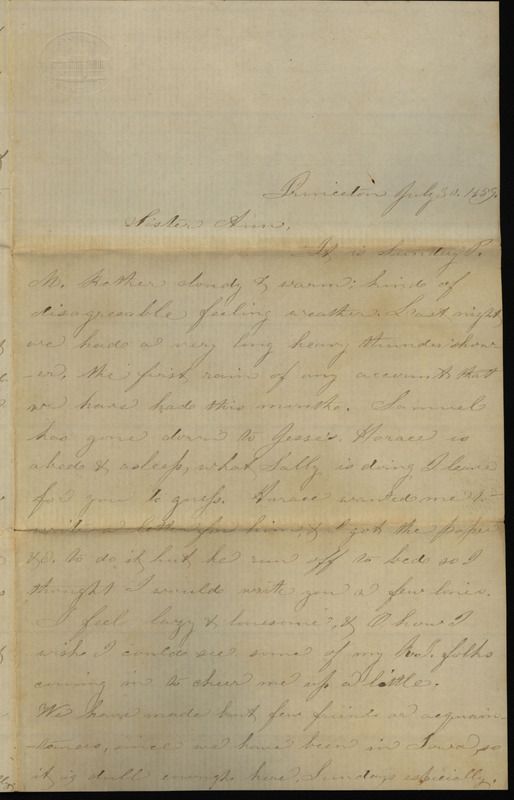 Princeton July 31. 1859.
Sister Ann,
It is Sunday P.
M. Rather cloudy & warm; kind of
disagreeable feeling weather. Last night
we had a very long heavy thunder show-
er, the first rain of any account that
we have had this month. Samuel
has gone down to Jesse's. Horace is
abed & asleep, what Sally is doing I leave
for you to guess. Horace wanted me to
write a letter for him, & I got the paper
&c. to do it but he run off to bed so I
thought I would write you a few lines.
I feel lazy & lonesome, & O how I
wish I could see some of my folks
coming in to cheer me up a little.
We have made but few friends or acquain-
tances, since we have been in Iowa, so
it is dull enough here, Sundays especially.